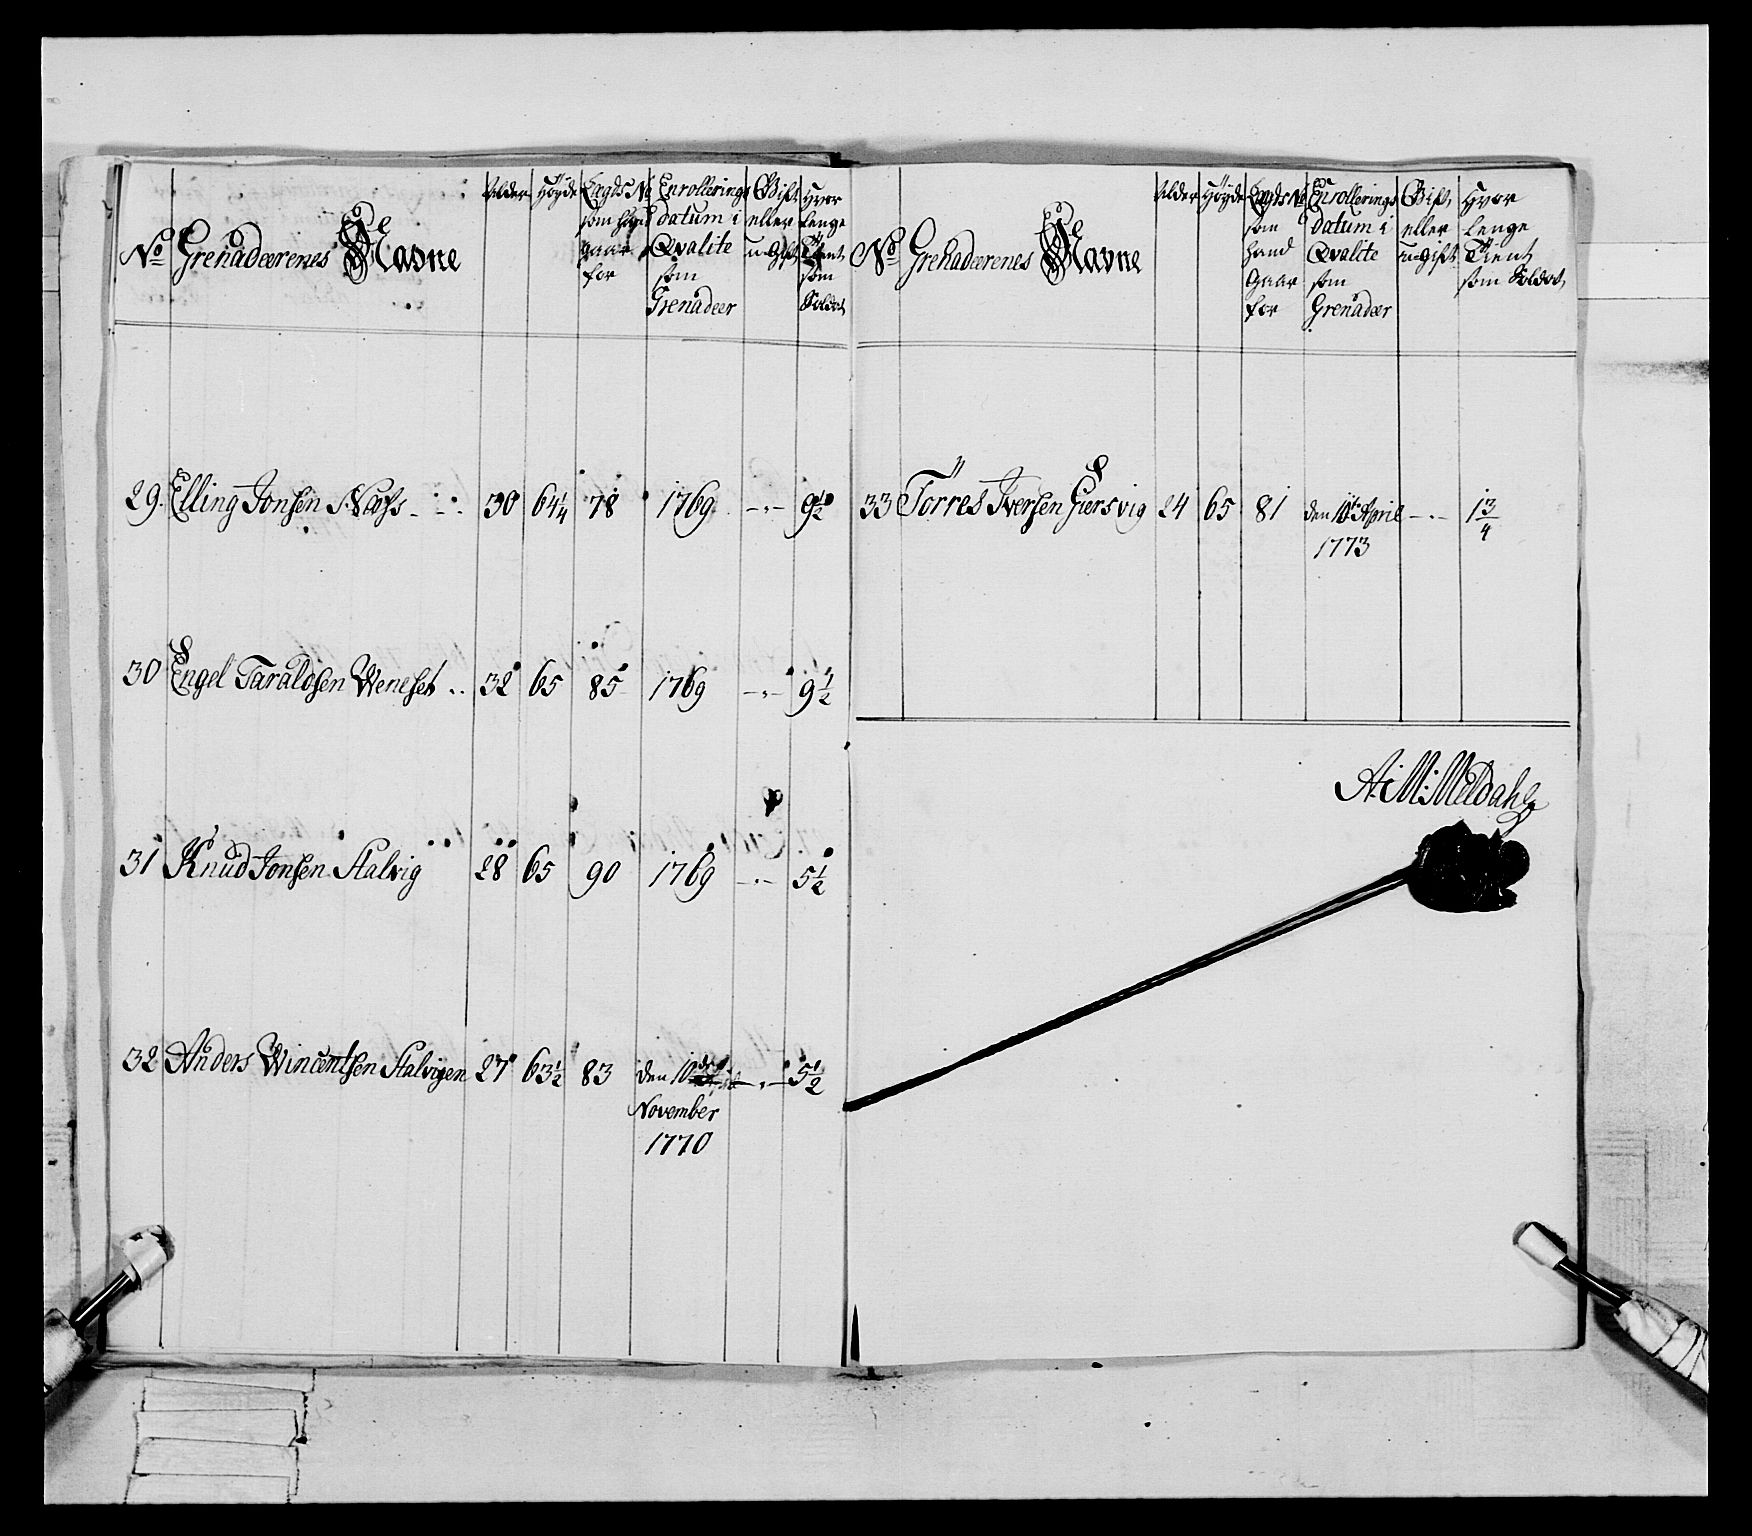 No Grenadeerenes Navne Alder Höyde Lagds No som hand gaar for Enrollerings datum i Qvalite som Grenadeer Gift eller u-gift Hvor lenge Tient som Soldat
29. Elling Jonsen Næss 30 64 1/4 78 1769 -"- 9 1/2
30 Engel Taraldsen Weneset 32 65 85 1769 -"- 9 1/2
31 Knud Jonsen Aalvig 28 65 90 1769 -"- 5 1/2
32 Anders Wincentsen Aalvigen 27 63 1/2 83 den 10de -"- 5 1/2
November
1770
No Grenadeerenes Navne Alder Höyde Lagds No som hand gaar for Enrollerings datum i Qvalite som Grenadeer Gift eller u-gift Hvor lenge Tient som Soldat
33 Törres Iversen Giersvig 24 65 81 den 10de April -"- 1 3/4
1773
A: M: Meldahl